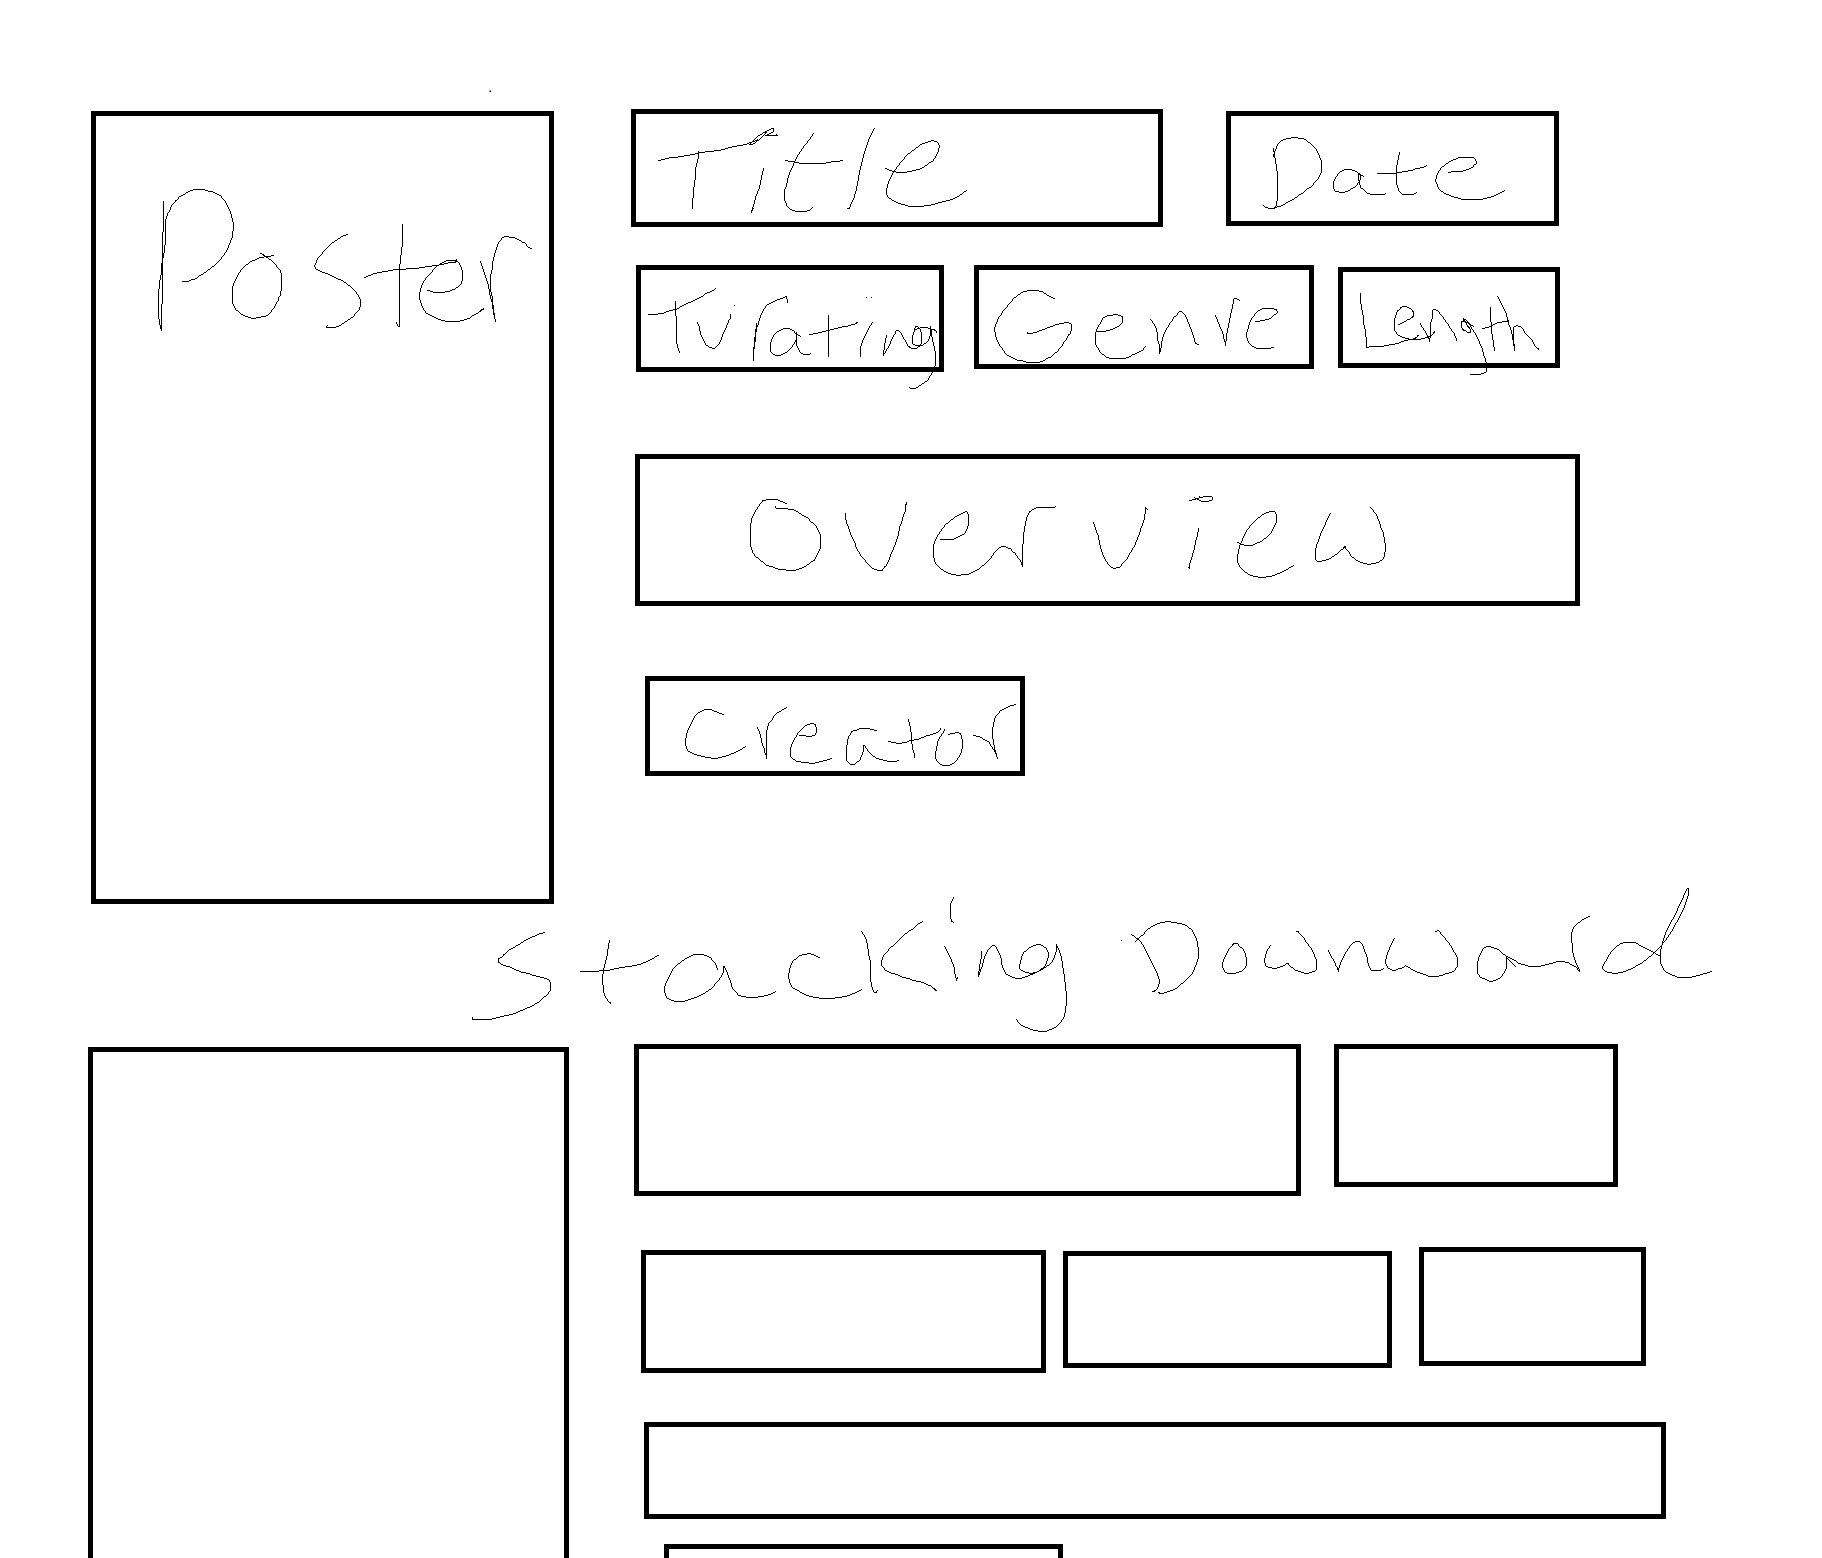 Title Date
Poster
Tv rating Genre Length
Overview
Creator
Stacking Downward